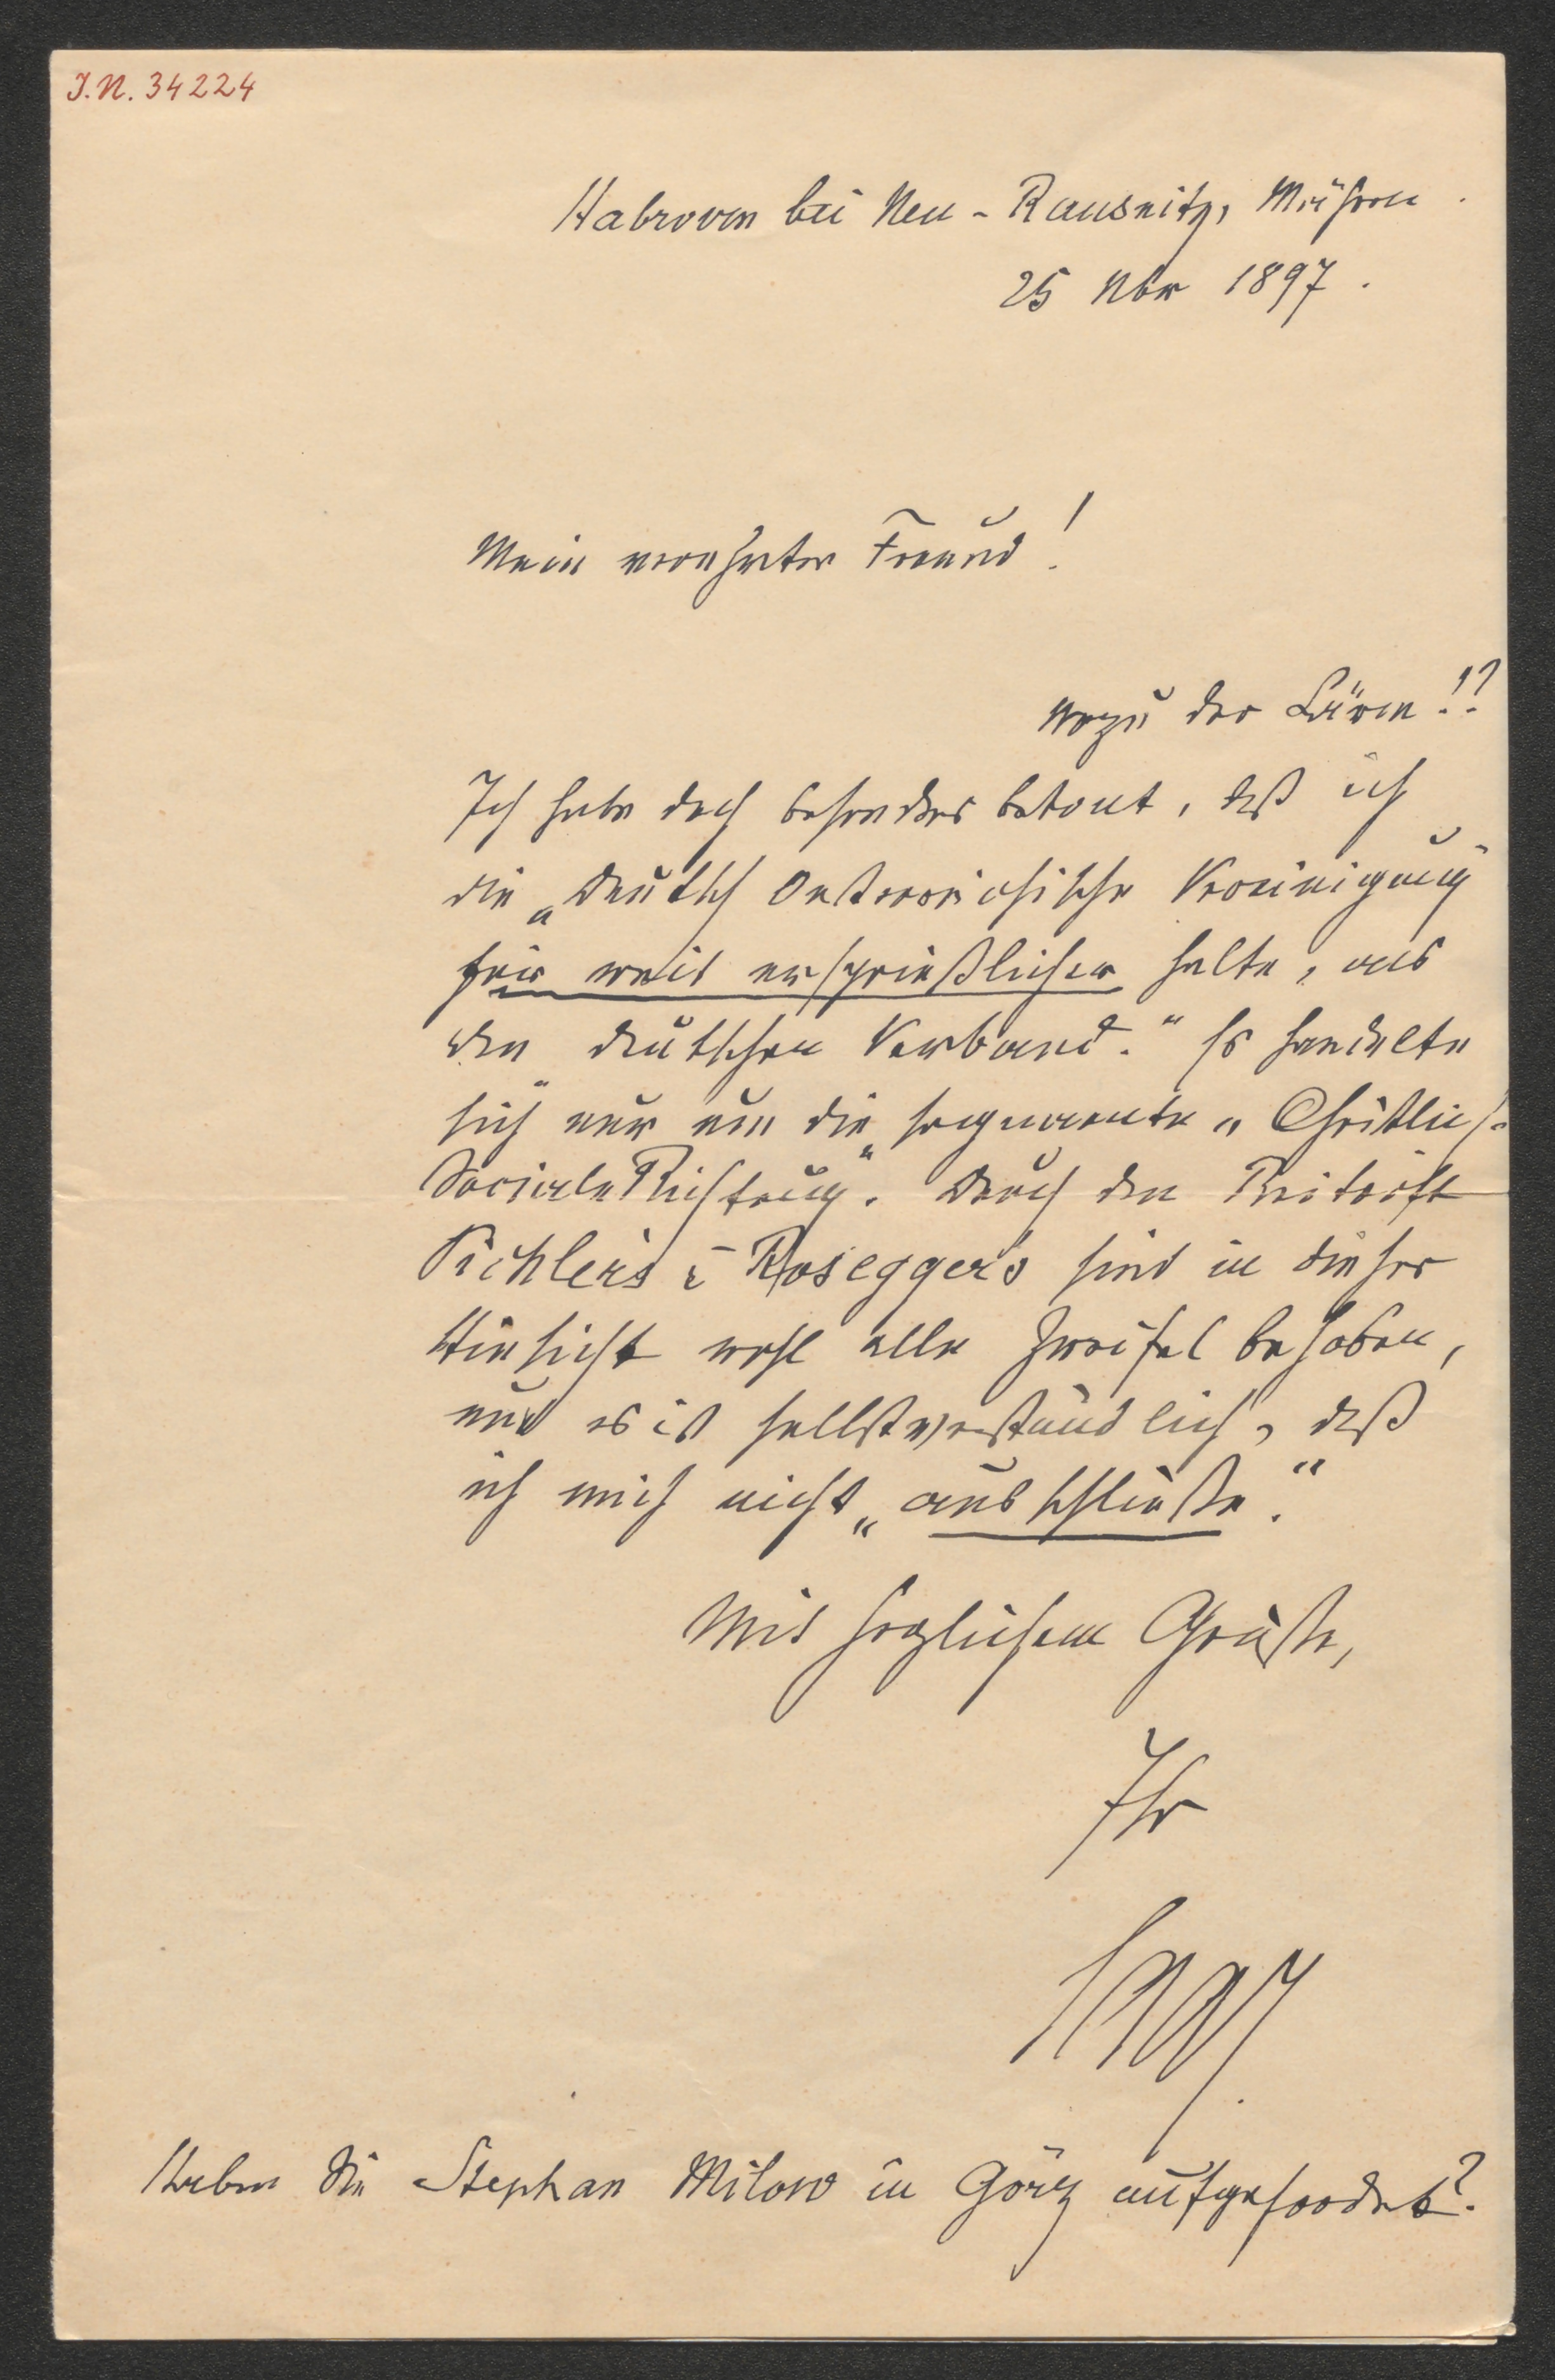 J.N. 34224
Habrovan bei Neu-Rausnitz, Mähren.
25 Nbr 1897.
Mein verehrter Freund!
Wozu der Lärm!?
Ich habe doch besonders betont, daß ich
die „Deutsch Oesterreichische Vereinigung"
für weit ersprießlicher halte, als
den „deutschen Verband." Es handelte
sich nur um die sogenannte „Christlich-
Sociale Richtung". Durch den Beitritt
Pichlers u Roseggers sind in dieser
Hinsicht wohl alle Zweifel behoben,
und es ist selbstverständlich, daß
ich mich nicht „ausschließe."
Mit herzlichem Gruße,
Ihr
Saar.
Haben Sie Stephan Milow in Görz aufgefordert?